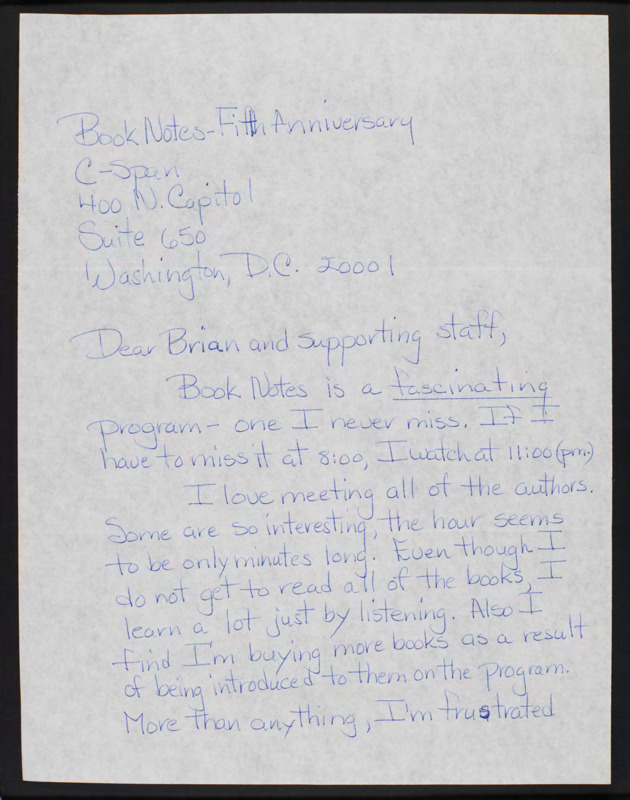 Book Notes-Fifth Anniversary
C-Span
400 N. Capitol
Suite 650
Washington, D.C. 20001
Dear Brian and supporting staff,
Book Notes is a fascinating
program- one I never miss. If I
have to miss it at 8:00, I watch at 11:00 (pm.)
I love meeting all of the authors.
Some are so interesting, the hour seems
to be only minutes long. Even though I
do not get to read all of the books, I
learn a lot just by listening. Also I
find I'm buying more books as a result
of being introduced to them on the program.
More than anything, I'm frustrated